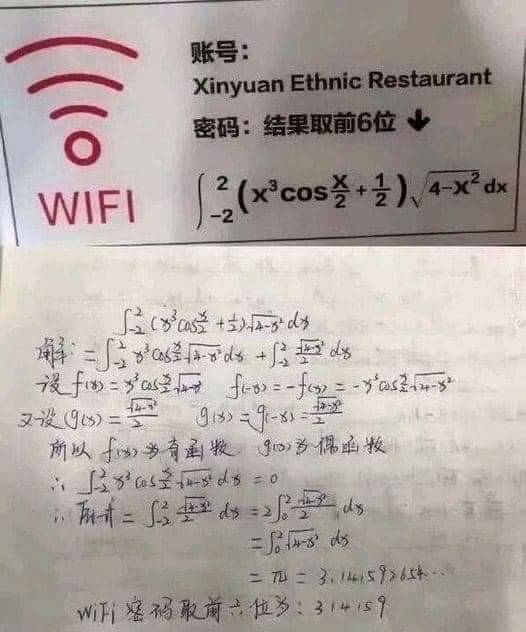 账号:
Xinyuan Ethnic Restaurant
密码: 结果取前6位 ↓
WIFI
∫_{-2}^{2} (x³cos x/2 + 1/2) √(4-x²) dx
∫_{-2}^{2} (x³cos x/2 + 1/2) √(4-x²) dx
解: = ∫_{-2}^{2} x³cos x/2 √(4-x²) dx + ∫_{-2}^{2} √(4-x²)/2 dx
设 f(x) = x³cos x/2 √(4-x²) f(-x) = -f(x) = -x³cos x/2 √(4-x²)
又设 g(x) = √(4-x²)/2 g(x) = g(-x) = √(4-x²)/2
所以 f(x)为奇函数, g(x)为偶函数
∴ ∫_{-2}^{2} x³cos x/2 √(4-x²) dx = 0
∴ 原式 = ∫_{-2}^{2} √(4-x²)/2 dx = 2∫_{0}^{2} √(4-x²)/2 dx
= ∫_{0}^{2} √(4-x²) dx
= π = 3.141592654...
WiFi 密码取前六位为: 314159